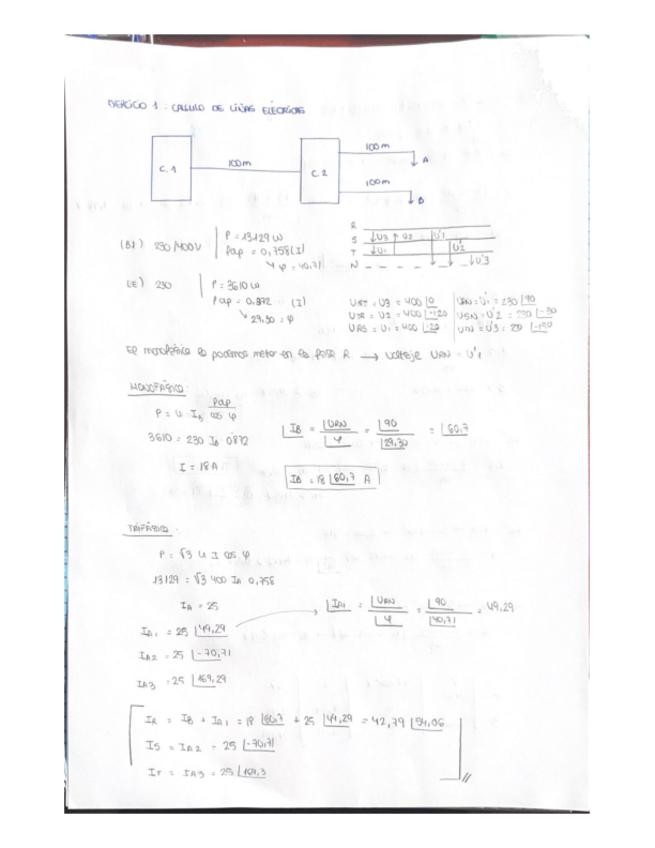 EJERCICIO 1 : CALCULO DE LÍNEAS ELÉCTRICAS
C.1
100m
C.2
100m
A
100m
B
230/400V
P = 13129 W
Pap = 0,758 (I)
φ = 40,71
230
P = 3610 W
Pap = 0,872 (I)
29,30 = φ
R
S
T
N
U3
U2
U1
U'1
U'2
U'3
= U3 = 400 |0
= U2 = 400 |-120
= U1 = 400
URN = U'1 = 230 |90
USN = U'2 = 230 |-30
= U'3 =
El monofásico lo podemos meter en la fase R. → voltaje URN = U'1
MONOFÁSICO:
Pap
P = U · IB cos φ
3610 = 230 IB 0'872
I = 18 A
|IB = |URN / |φ = |90 / |29,30 = |60,7
IB = 18 |60,7 A
TRIFÁSICO:
P = √3 U I cos φ
13129 = √3 400 IA 0,758
IA = 25
|IA1 = |URN / |φ = |90 / |40,71 = 49,29
IA1 = 25 |49,29
IA2 = 25 |-70,71
IA3 = 25 |169,29
IR = IB + IA1 = 18 |60,7 + 25 |49,29 = 42,79 |54,06
IS = IA2 = 25 |-70,71
IT = IA3 = 25 |169,3